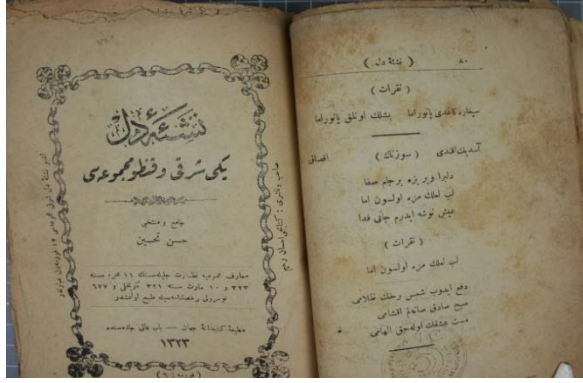 نشئهٔ دل
یكی شرقی و قنطو مجموعه‌سی
جامع و منتخبی
حسن تحسین
معارف عمومیه نظارت جلیله‌سنك ١١ محرم سنه
٣٢٣ و ١٠ مارت سنه ٣٢١ تاریخلی و ٦٧٧
نومرولی رخصتنامه‌سیله طبع اولنمشدر
مطبعه و كتابخانهٔ جهان — باب عالی جاده‌سنده
١٣٢٣
٨٠ ( نشئهٔ دل )
( نقرات )
سیغاره كاغدی پانوراما یشلك اونلق پانوراما
آمدیك افندی ( سوزناك ) اقصاق
دلبرا ویر بزه بر جام صفا
لب لعلك مزه اولسون اما
عیش نوشه ایدرم جانی فدا
( نقرات )
لب لعلك مزه اولسون اما
دفع ایدوب شمس رخك ظلامی
صبح صادق صانه‌لم اقشامی
مست عشقك اوله‌جق الهامی